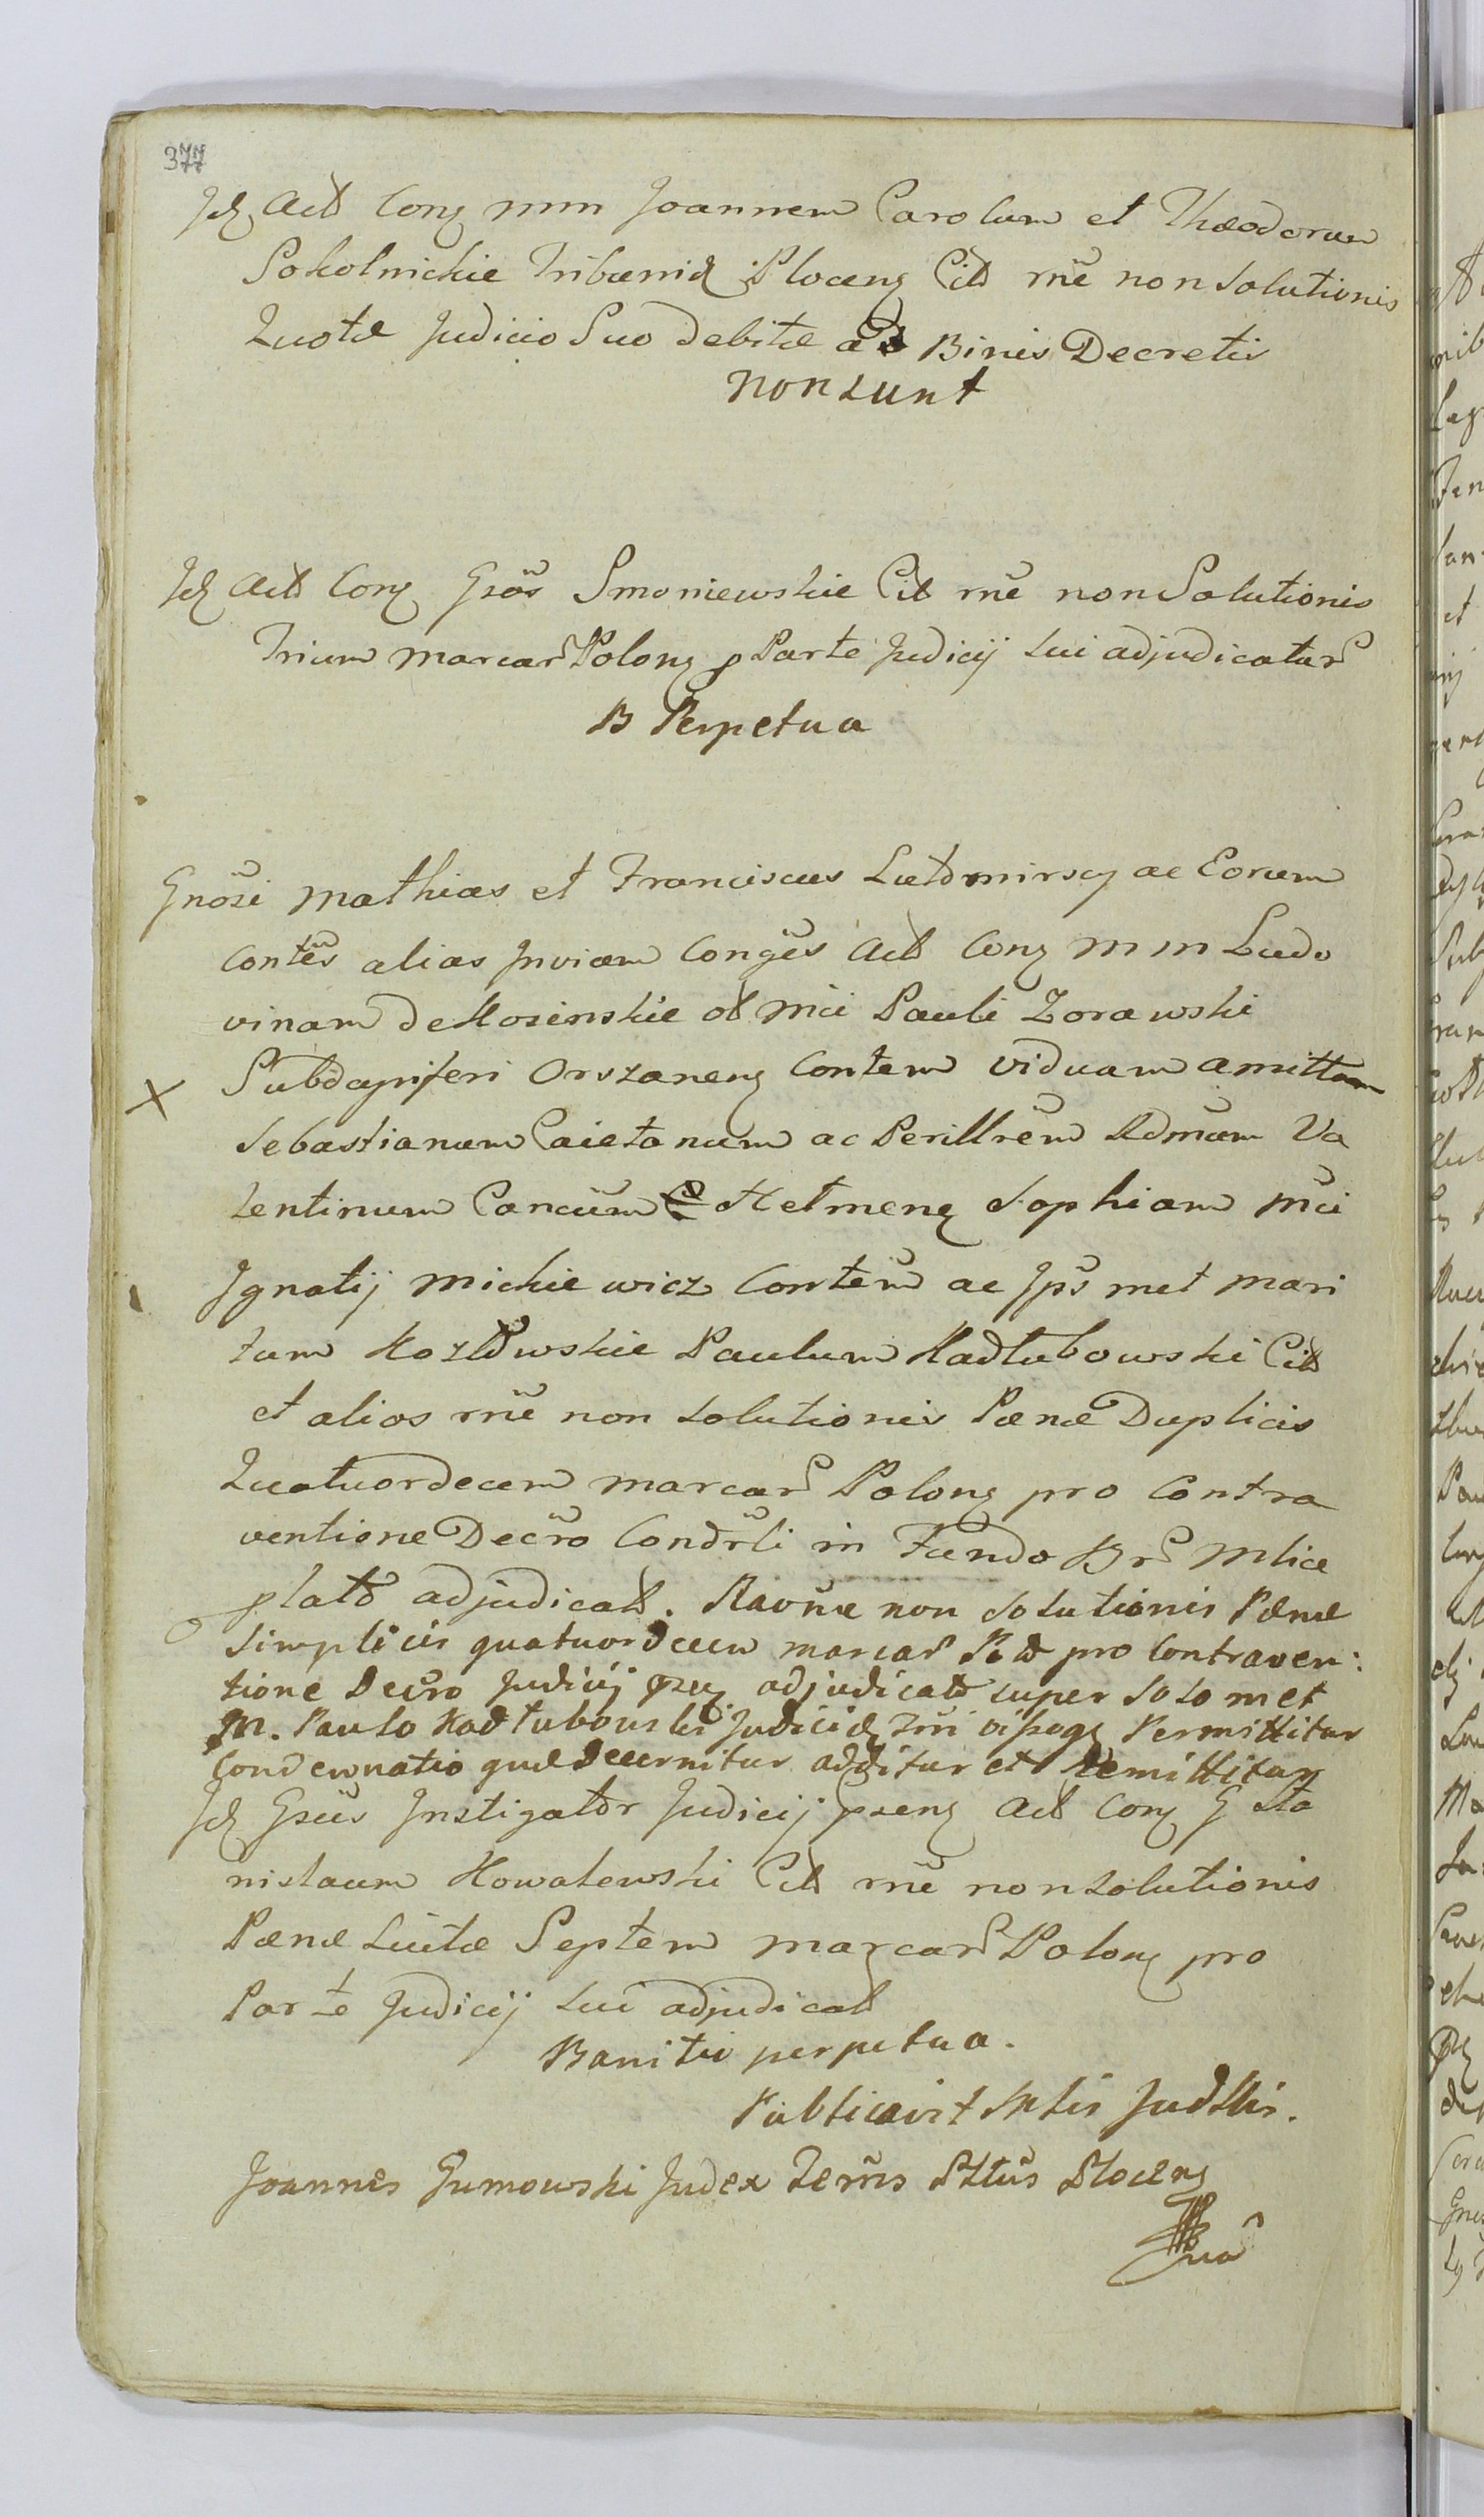 377
Jdꝫ Actt Conꝫ mm Joannem Carolum et Theodorum
Sokolnickie Tribunidꝫ Plocenꝫ Citt rñe non Solutionis
Quotæ Judicio Suo debitæ ad Binis Decretis
non sunt
Jdꝫ Actt Conꝫ Gsös Smoniewskie Citt rñe non Solutionis
Trium marcar Polonꝫ p Parte Judicij sui adjudicatar
B Perpetua
Gnösi Mathias et Franciscus Ludomirscy ac Eorum
Contẽs alias Inviam Congẽs Actt Conꝫ mm Ludo
vinam de Kosinskie ol mci Pauli Zorawski
Subdapiferi Orszanenꝫ Contem viduam amittam
Sebastianum Caietanum ac Perillrẽm Admum Va
lentinum Cancum Hetmenꝫ Sophiam Mci
Ignatij Mickiewicz Contẽm ac Jps met mari
tum Kozłowskie Paulum Kadłubowski Citt
et alios rñe non solutionis Pænæ Duplicis
Quatuordecem marcar Polonꝫ pro Contra
ventione Decro Condrli in Fundo Br Mlice
plato adjudicatt. Raõne non solutionis Pænæ
simplicis quatuordecem marcar Pol pro Contraven:
tione Decro Judicij adjudicatt super solo met
M. Paulo Kadłubowski Permittitur
Condemnatio quæ decernitur additur et Remittitur
Jdꝫ Gsüs Instigator Judicij psenꝫ Actt Conꝫ G Sta
nislaum Kowalewski Citt rñe non solutionis
Pænæ Luitæ Septem marcar Polonꝫ pro
Parte Judicij sui adjudicatt
Banitio perpetua.
Publicavit Judllis.
Joannes Gumowski Judex Terris Plttus Plocenꝫ
mp